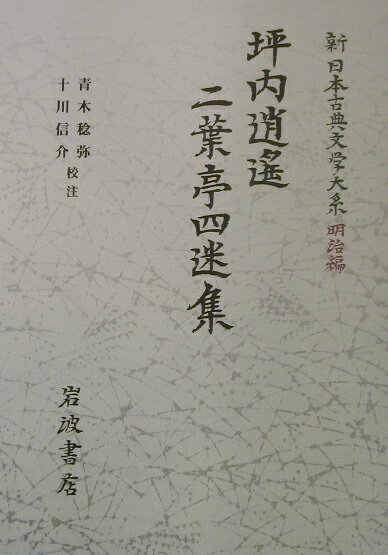 新日本古典文学大系 明治編
坪内逍遙
二葉亭四迷集
青木稔弥
十川信介 校注
岩波書店